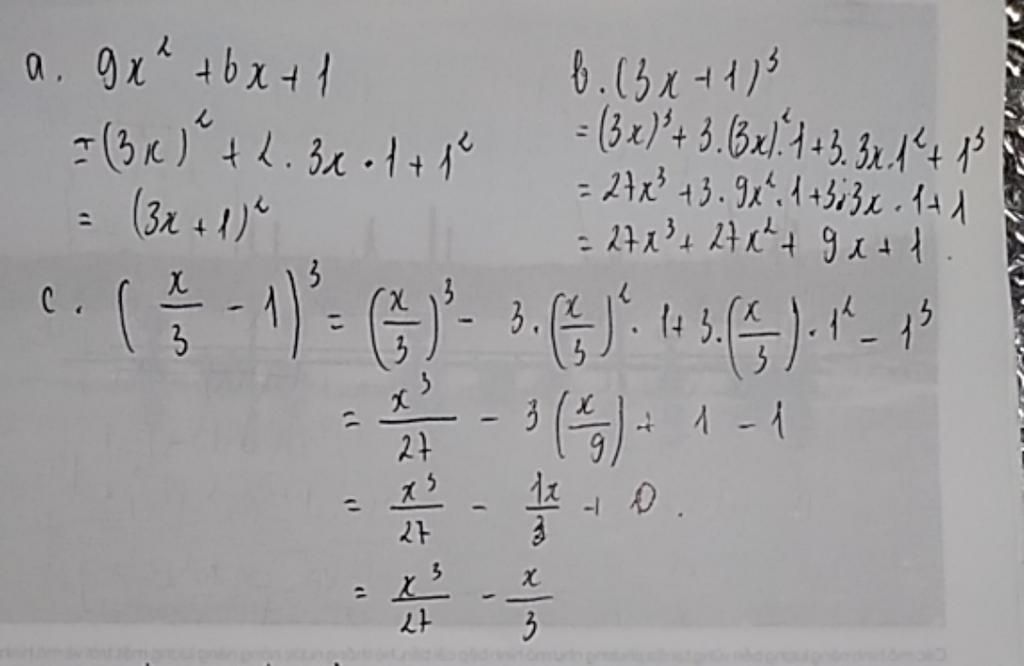 a. 9x² + 6x + 1
= (3x)² + 2 . 3x . 1 + 1²
= (3x + 1)²
b. (3x + 1)³
= (3x)³ + 3.(3x)².1 + 3.3x.1² + 1³
= 27x³ + 3.9x².1 + 3.3x.1 + 1
= 27x³ + 27x² + 9x + 1.
c. (x/3 - 1)³ = (x/3)³ - 3.(x/3)².1 + 3.(x/3).1² - 1³
= x³/27 - 3(x/9) + 1 - 1
= x³/27 - 1x/3 + 0.
= x³/27 - x/3